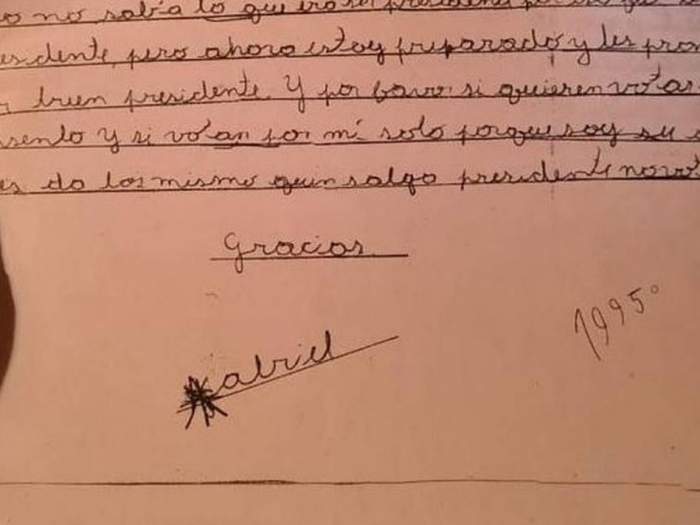 no sabía lo que era ser presidente por
esidente, pero ahora estoy preparado y les pro
buen presidente. Y por favor si quieren votar
sento y si votan por mi solo porque soy su
es da los mismo quin salga presidente no vo
Gracias
Gabriel
1995°